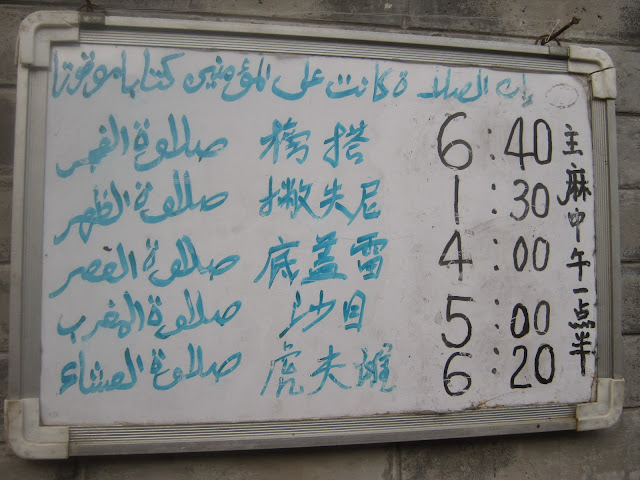 إن الصلاة كانت على المؤمنين كتابا موقوتا
صلوة الفجر 榜搭 6:40
صلوة الظهر 撇失尼 1:30
صلوة العصر 底盖雷 4:00
صلوة المغرب 沙目 5:00
صلوة العشاء 虎夫滩 6:20
主麻中午一点半